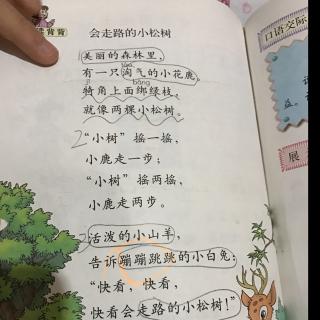 读读背背
会走路的小松树
美丽的森林里，
有一只淘气的小花鹿。
犄角上面绑绿枝，
就像两棵小松树。
“小树”摇一摇，
小鹿走一步；
“小树”摇两摇，
小鹿走两步。
活泼的小山羊，
告诉蹦蹦跳跳的小白兔：
“快看，快看，
快看会走路的小松树！”
口语交际
展